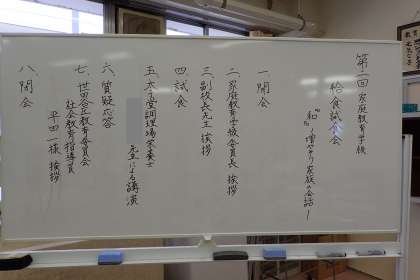 第二回 家庭教育学級
給食試食会
一 開会
二 家庭教育学級委員長 挨拶
三 副校長先生 挨拶
四 試食
五
調理場栄養士
先生による講演
六 質疑応答
七
教育委員会
社会教育指導員
平田一様 挨拶
八 閉会